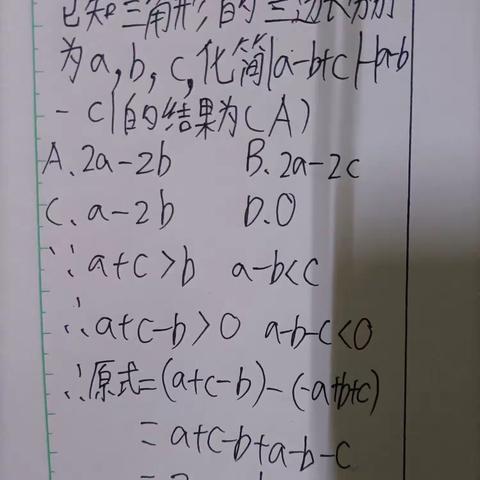 已知三角形的三边长分别
为a,b,c,化简|a-b+c|-|a-b
-c|的结果为(A)
A、2a-2b B、2a-2c
C、a-2b D、0
∵a+c>b a-b<c
∴a+c-b>0 a-b-c<0
∴原式=(a+c-b)-(-a+b+c)
=a+c-b+a-b-c